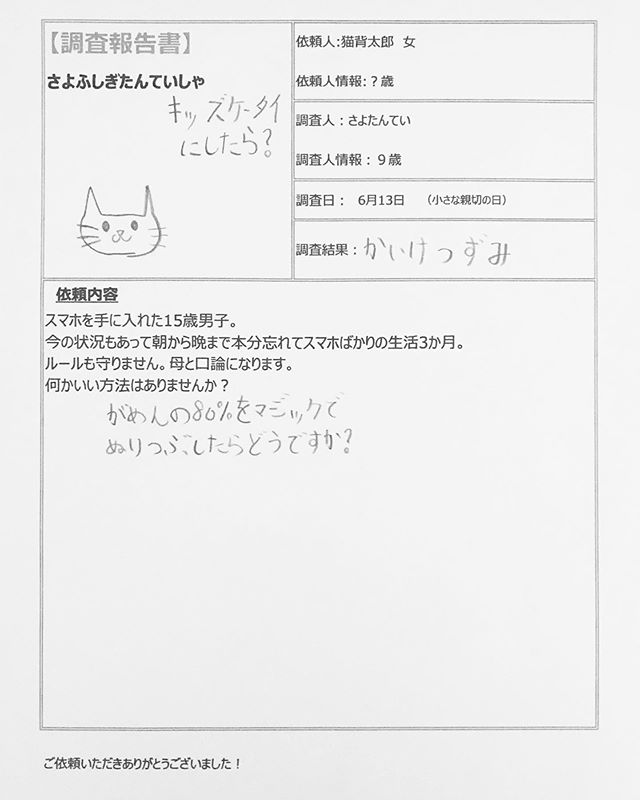 【調査報告書】
さよふしぎたんていしゃ
キッズケータイ
にしたら?
依頼人:猫背太郎 女
依頼人情報:?歳
調査人:さよたんてい
調査人情報:9歳
調査日: 6月13日 (小さな親切の日)
調査結果:かいけつずみ
依頼内容
スマホを手に入れた15歳男子。
今の状況もあって朝から晩まで本分忘れてスマホばかりの生活3か月。
ルールも守りません。母と口論になります。
何かいい方法はありませんか?
がめんの80%をマジックで
ぬりつぶしたらどうですか?
ご依頼いただきありがとうございました!